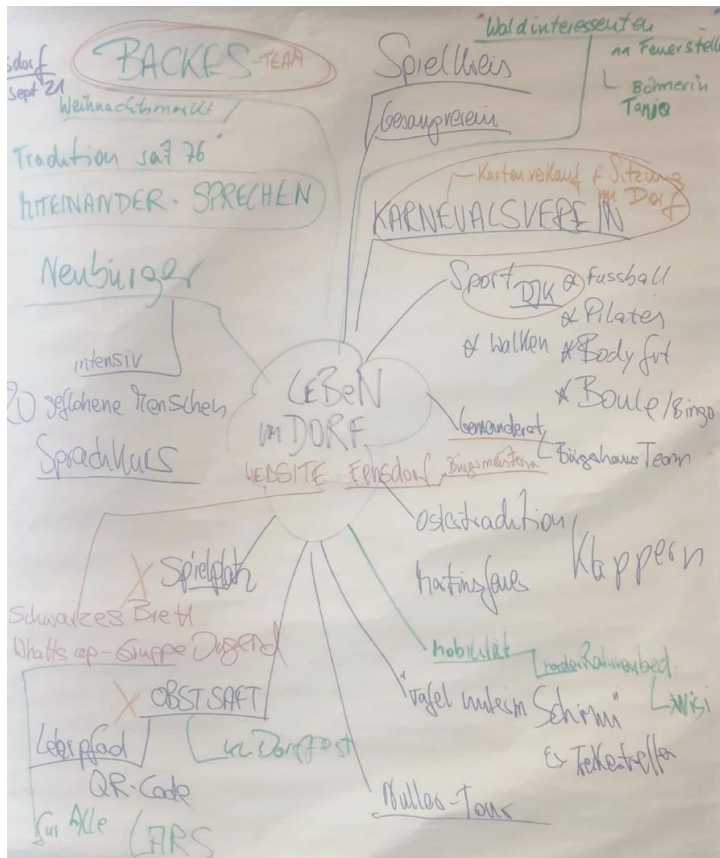 sdorf
Sept 21
BACKES-TEAM
Weihnachtsmarkt
Tradition seit 76
MITEINANDER · SPRECHEN
Neubürger
intensiv
20 geflohene Menschen
Sprachkurs
Spielkreis
Gesangverein
Waldinteressenten
Feuerstelle
Böhmerin
Tanja
Kartenverkauf + Sitzung
im Dorf
KARNEVALSVEREIN
Sport DJK
Fussball
Pilates
Walken
Body fit
Boule/Bingo
LEBEN
im DORF
WEBSITE Fensdorf Bürgermeisterin
Gemeinderat
Bürgerhaus Team
Ostertradition
Klappern
Martinsfeuer
Mobilität
Rahmenbed.
Wisi
"Tafel unterm Schirm"
Nulles-Tour
X Spielplatz
Schwarzes Brett
Whatts ap-Gruppe Jugend
X OBSTSAFT
Dorffest
Lehrpfad
QR-Code
für Alle
LARS